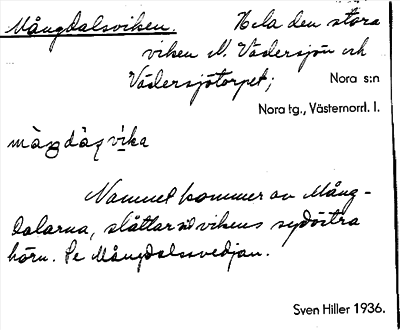 Mångdalsviken. Hela den stora
viken N. Vädersjön och
Vädersjötorpet; Nora s:n
Nora tg., Västernorrl. l.
måŋdàɭvìka
Namnet kommer av Mång-
dalarna, slåttar vid vikens sydöstra
hörn. Se Mångdalssvedjan.
Sven Hiller 1936.